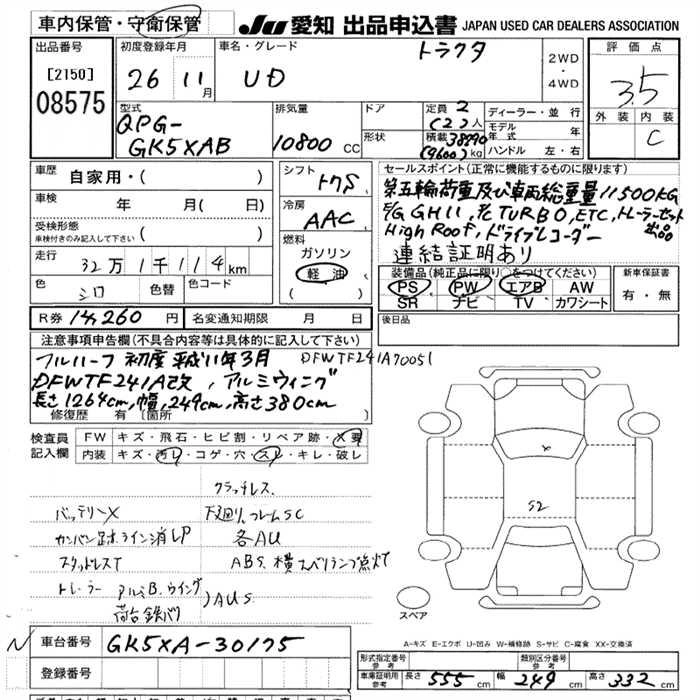 車内保管・守衛保管
JU 愛知 出品申込書 JAPAN USED CAR DEALERS ASSOCIATION
出品番号
[2150]
08575
初度登録年月
26 11月
車名・グレード
トラクタ
UD
2WD
・
4WD
評価点
3.5
外装 内装
C
型式
QPG-
GK5XAB
排気量
10800 CC
ドア
形状
定員 2
(2)人
積載 38290
(9600)kg
ディーラー・並行
モデル年式 年
ハンドル 左・右
車歴
自家用・( )
車検
年 月( 日)
受検形態
車検付きのみ記入して下さい ( )
走行
32万1千114km
色
シロ
色替
色コード
シフト
冷房
AAC
燃料
ガソリン
軽油
( )
セールスポイント(正常に機能するものに限ります)
第五輪荷重及び車両総重量11500KG
E/G GH11, TURBO, ETC, トレーラーセット出品
High Roof, ドライブレコーダー
連結証明あり
装備品(純正品に限り○をつけてください)
PS PW エアB AW
SR ナビ TV カワシート
新車保証書
有・無
R券 14,260 円
名変通知期限 月 日
後日品
注意事項申告欄(不具合内容等は具体的に記入して下さい)
フルハーフ 初度 平成11年3月 DFWTF241A70051
DFWTF241A改, アルミウィング
長さ1264cm, 幅249cm, 高さ380cm
修復歴 有 [箇所 ]
検査員記入欄
FW キズ・飛石・ヒビ割・リペア跡・X要
内装 キズ・汚レ・コゲ・穴・スレ・キレ・破レ
クラッチレス
バッテリーX 下廻り、フレームSC
ライン消しP 各AU
スタッドレスT ABS、横スベリランプ点灯
トレーラー アルミB、ウイング
荷台鉄バリ )AUS
X
S2
スペア
A-キズ E-エクボ U-凹み W-補修跡 S-サビ C-腐食 XX-交換済
N
車台番号 GK5XA-30175
登録番号
形式指定番号 参考
類別区分番号 参考
車庫証明用 参考 長さ 555 cm 幅 249 cm 高さ 332 cm